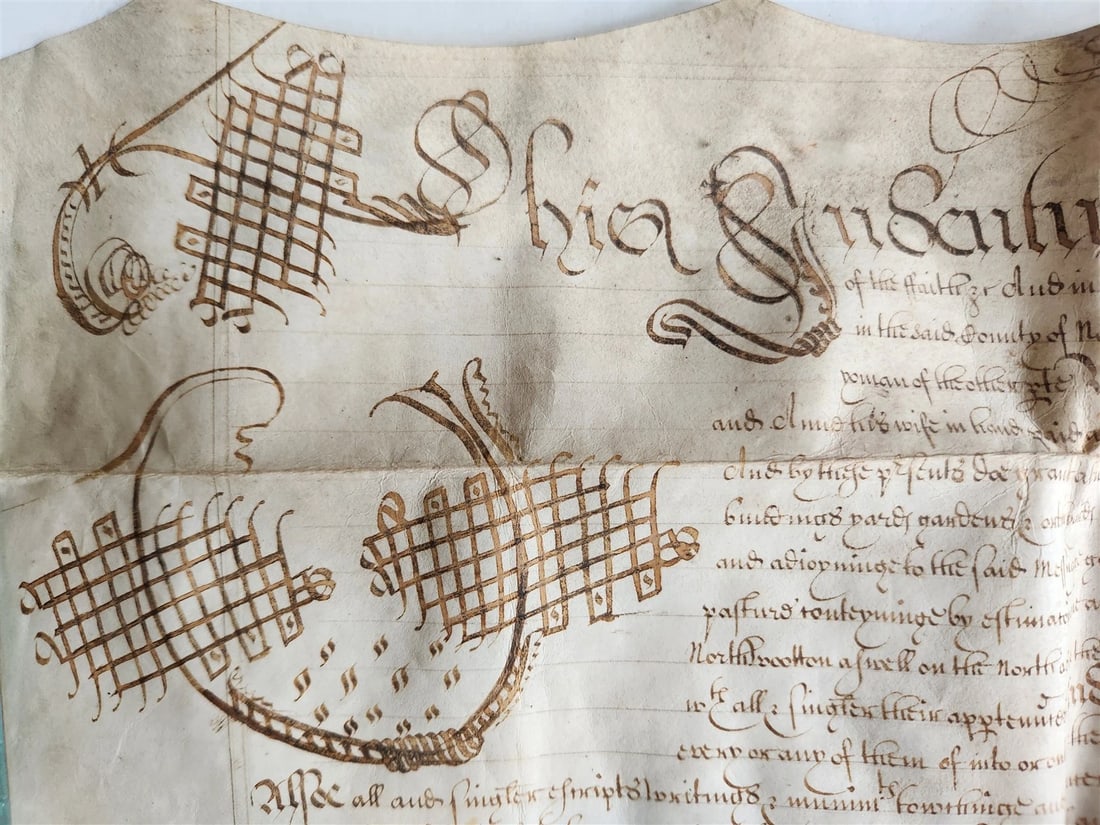 This Indentu
of the ffaith &c And in
in the said County of No
yoman of the other pte
and Anne his wife in hand paid
And by these psents Doe graunt
buildings yards gardens & orchards
and adioyninge to the said Messuage
pasture conteyninge by estimatō
Northwootton aswell on the North
wth all & singler their apptenntes
every or any of them of into or
Alsoe all and singler escripts writings & minimts towchinge